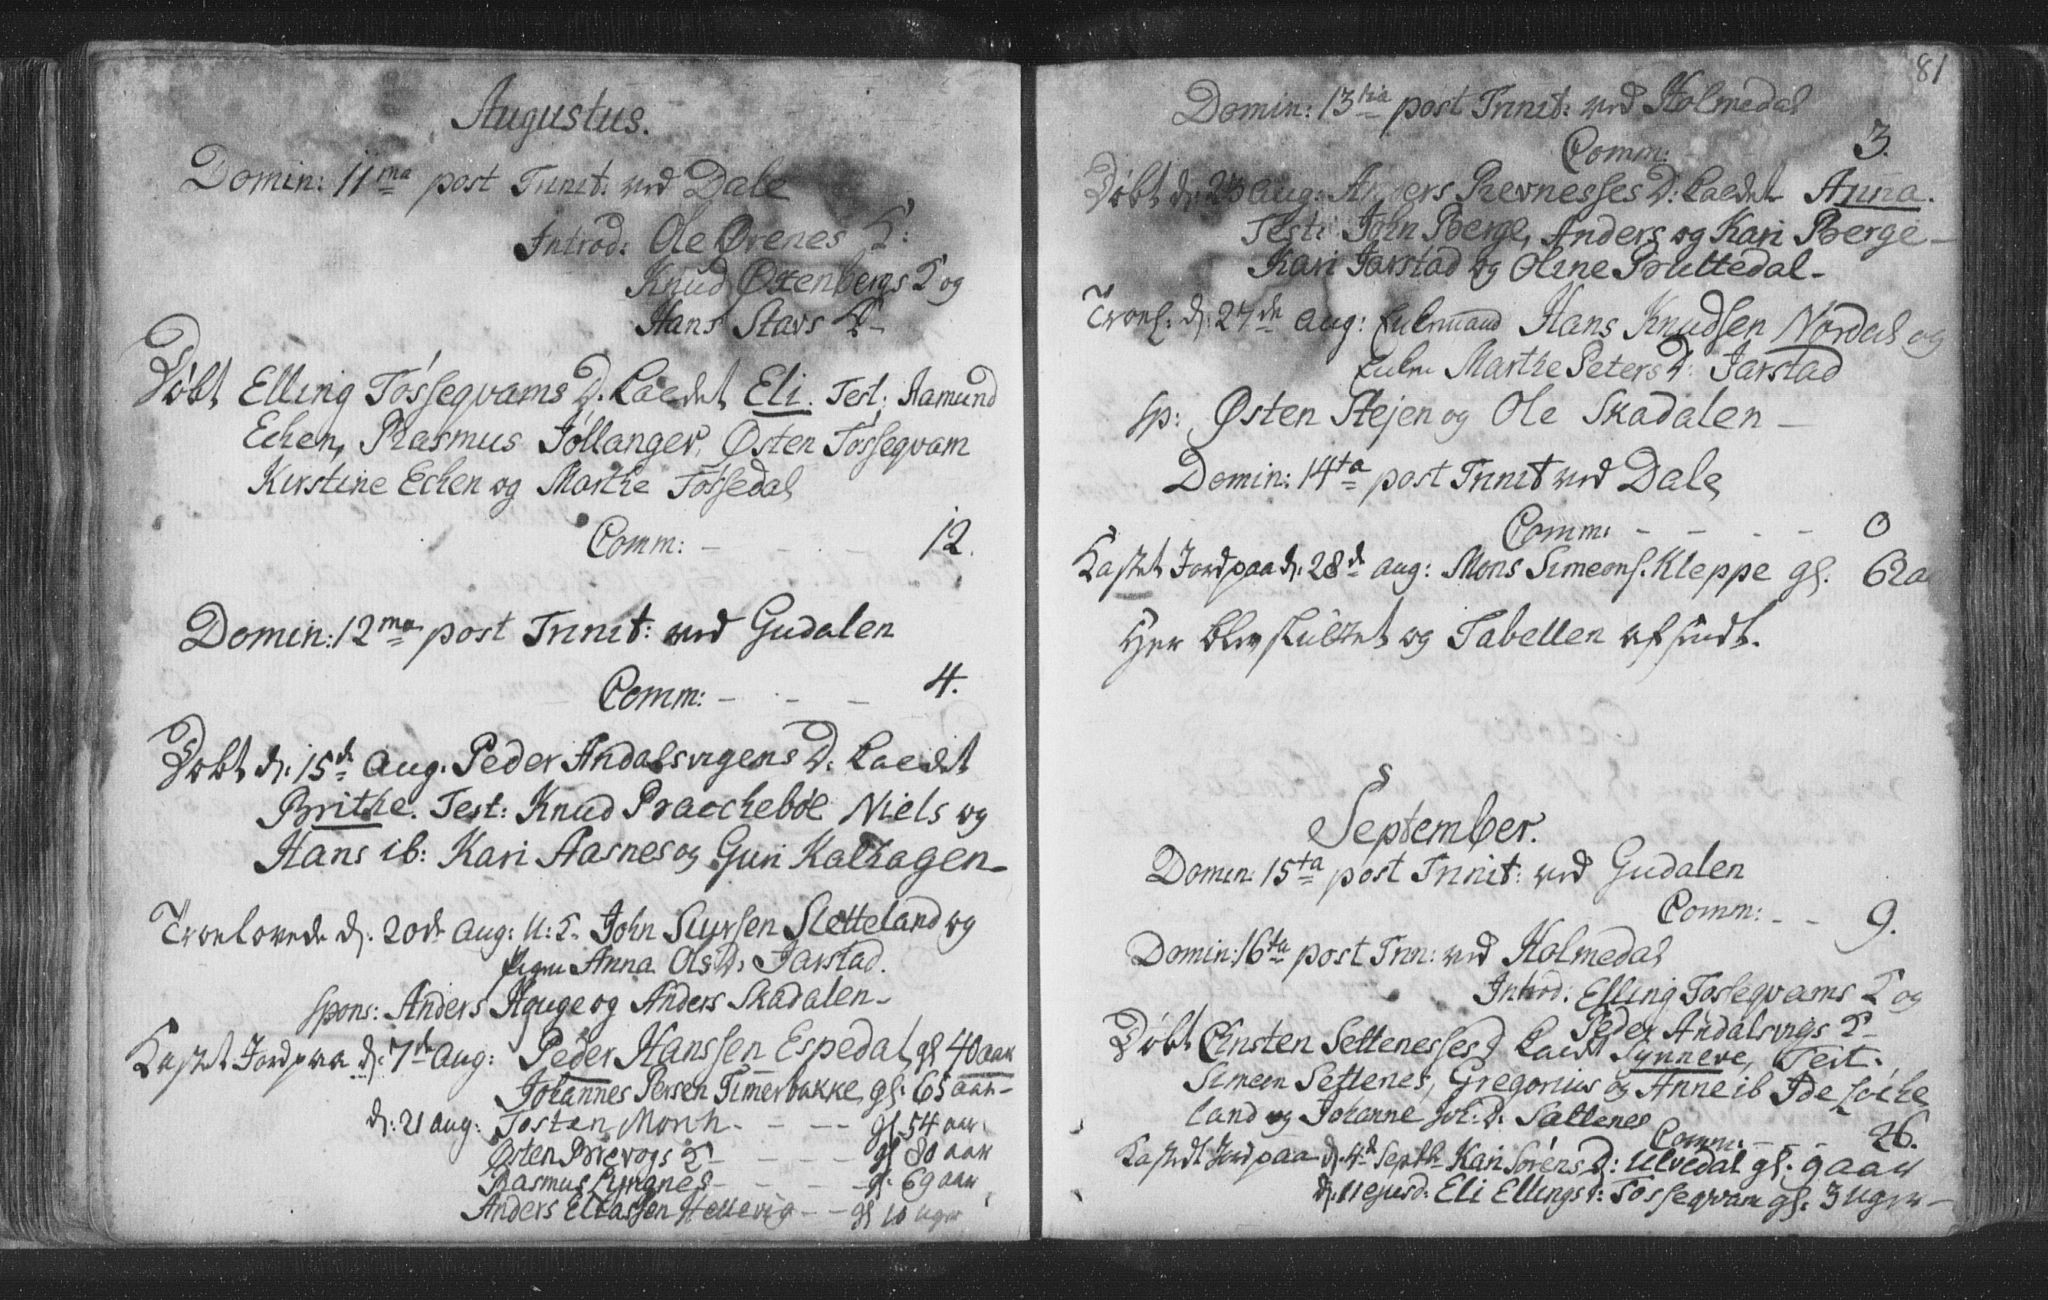 Augustus.
Domin: 11ma post Trinit: ved Dale
Introd: Ole Ørenes K:
Knud Østenbergs K og
Hans Stavs K -
Døbt Elling Tøsseqvams D. kaldet Eli. Test: Aamund
Echen, Rasmus Jøllanger, Østen Tøsseqvam
Kirstine Echen og Marthe Tøssedal
Comm: - - - 12.
Domin: 12ma post Trinit: ved Gudalen
Comm: - - - 4.
Døbt d: 15de Aug. Peder Andalsvigens D: kaldet
Brithe. Test: Knud Bracchebøe Niels og
Hans ib: Kari Aasnes og Guri Kalhagen -
Troelovede d. 20de Aug: U: K. John Siursen Sletteland og
Pigen Anna OlsD. Jarstad.
Spons: Anders Hauge og Anders Skadalen -
Kastet Jord paa d: 7de Aug: Peder Hanssen Espedal gl 40 aar
Johannes Persen Timerbakke gl: 65 aar -
d: 21 aug: Tosten Monh - - - gl 54 aar
Østen Brevogs K - - - gl 80 aar
Rasmus Lyngnes - - - gl. 69 aar
Anders Eliassen Hellevig - - gl 10 uger
81
Domin: 13tia post Trinit: ved Holmedal
Comm: 3.
Døbt d: 23 aug: Anders Revnesses D: kaldet Anna.
Test: John Berge, Anders og Kari Berge -
Kari Jarstad og Oline Bruttedal -
Troel: d: 27de aug: Enkemand Hans Knudsen Nordal og
Enken Marthe PetersD: Jarstad
Sp: Østen Stejen og Ole Skadalen -
Domin: 14ta post Trinit ved Dale
Comm: - - - - 0
Kastet Jord paa d: 28de aug: Mons Simeons. Kleppe gl. 62 aar
Her blev sluttet og Tabellen afsendt.
September.
Domin: 15ta post Trinit: ved Gudalen
Comm: - - 9.
Domin: 16ta post Trin: ved Holmedal
Introd: Elling Tøsseqvams K og
Peder Andalsvigs K -
Døbt Christen Settenesses D kaldet Synneve, Test:
Simeon Settenes, Gregorius og Anne ib Ide Loche
land og Johanne Joh: D: Sattenes
Comm: - - - 26.
Kastet Jord paa d: 4de Septbr Kari SørensD: Ulvedal gl. 9 aar
d: 11 ejusd: Eli Ellingsd: Tosseqvam gl: 3 uger -